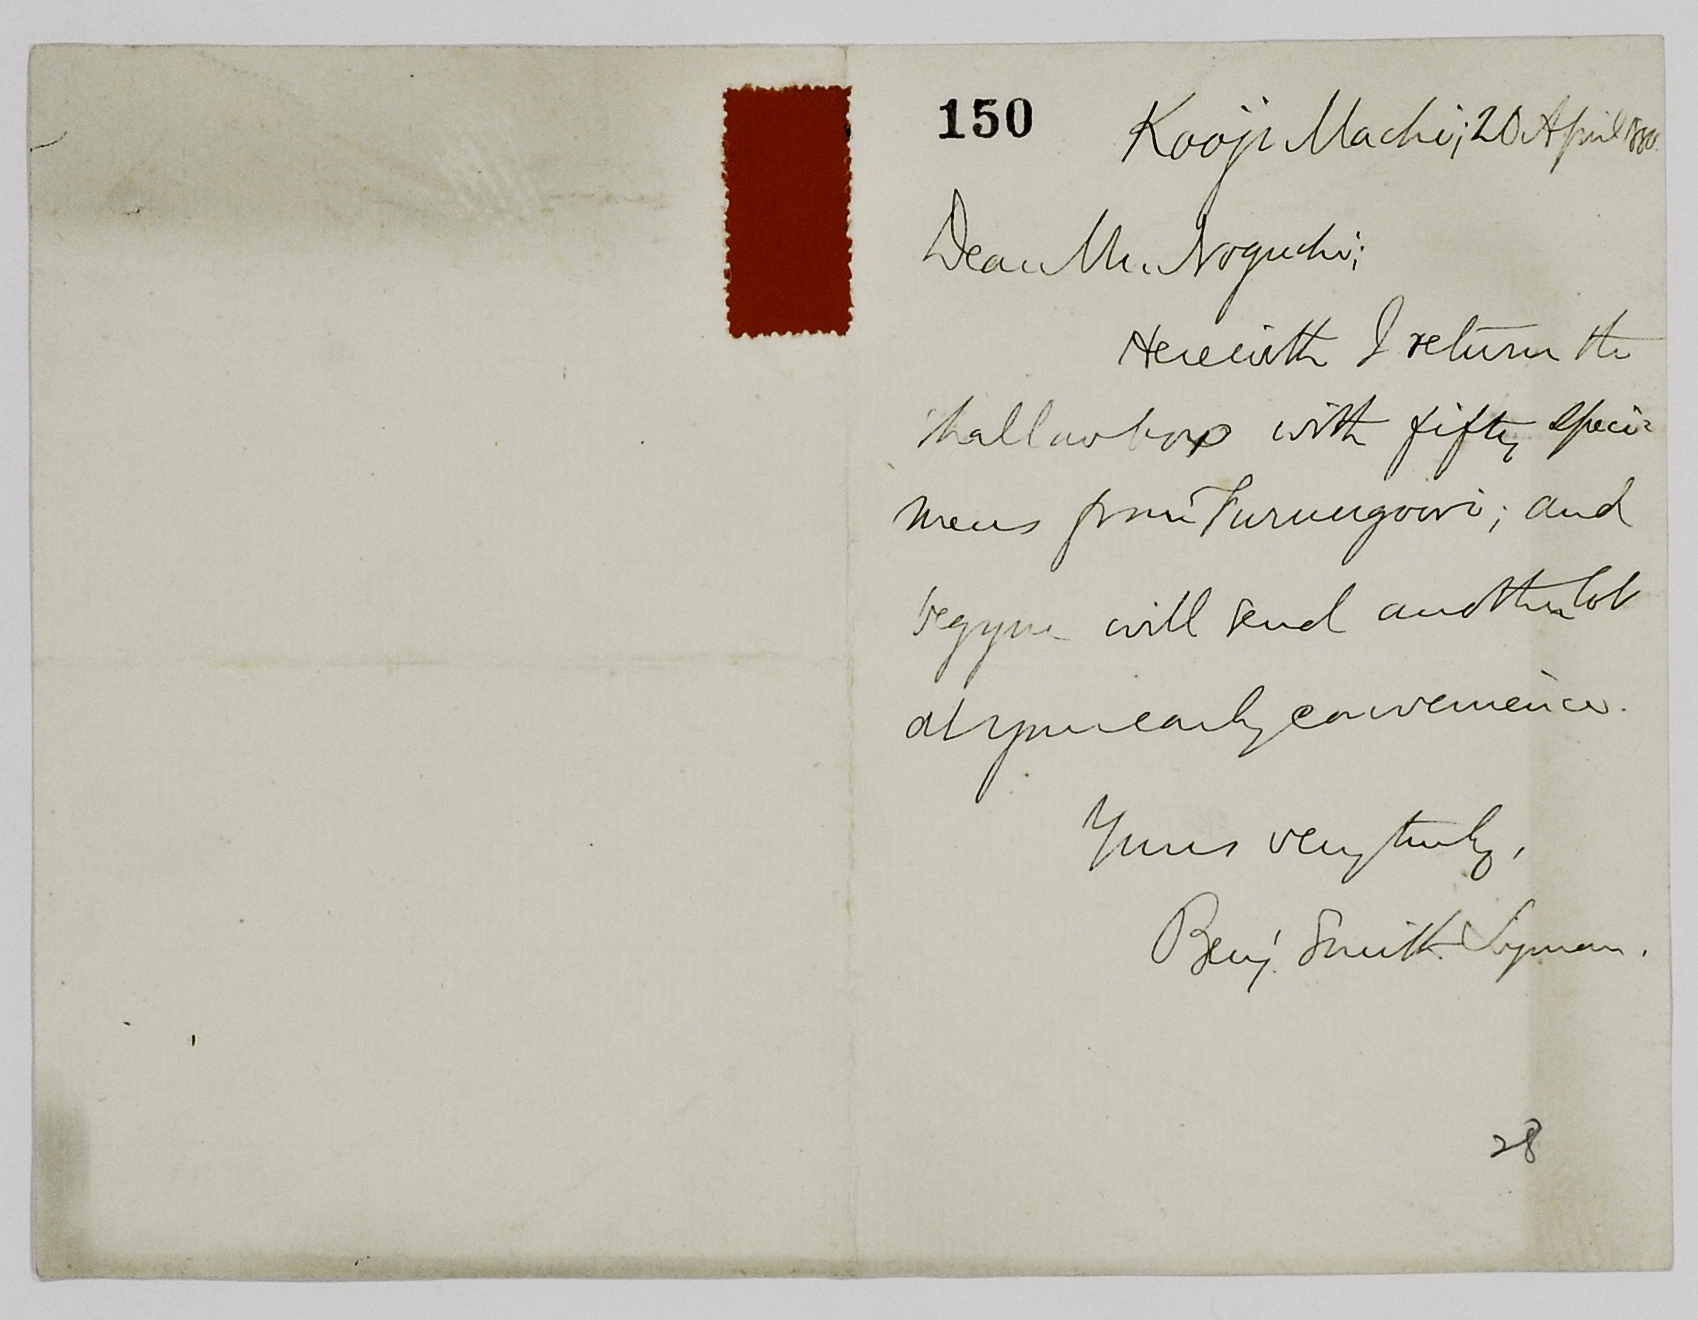 150
Kooji Machi; 20 April 1880.
Dear Mr. Noguchi;
Herewith I return the
shallow box with fifty speci-
mens from; and
beg you will send another lot
at your early convenience.
Yours very truly,
Benj. Smith Lyman.
28